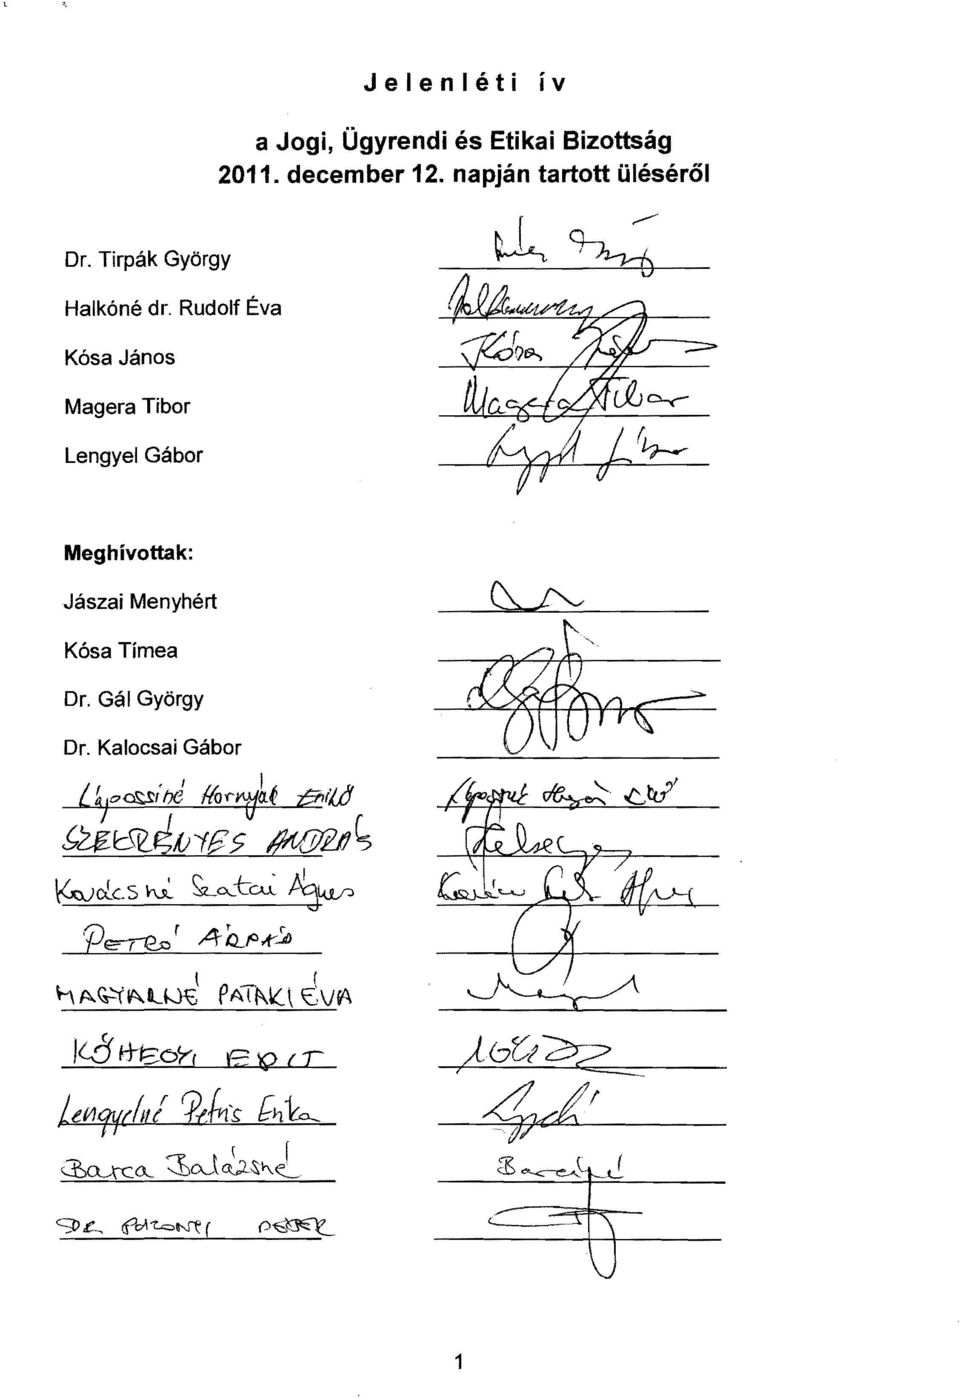 Jelenléti ív
a Jogi, Ügyrendi és Etikai Bizottság
2011. december 12. napján tartott üléséről
Dr. Tirpák György
Halkóné dr. Rudolf Éva
Kósa János Kósa János
Magera Tibor Magera Tibor
Lengyel Gábor Lengyel Gábor
Meghívottak:
Jászai Menyhért
Kósa Tímea
Dr. Gál György
Dr. Kalocsai Gábor
Lápossiné Hornyák Enikő
SZEKRÉNYES ANDRÁS
Kovácsné Szatai Ágnes
PETRÓ ÁRPÁD
MAGYARNÉ PATAKI ÉVA
KŐHEGYI EDIT
Lengyelné Petris Erika
Barca Balázsné
DR. PÉTER
1